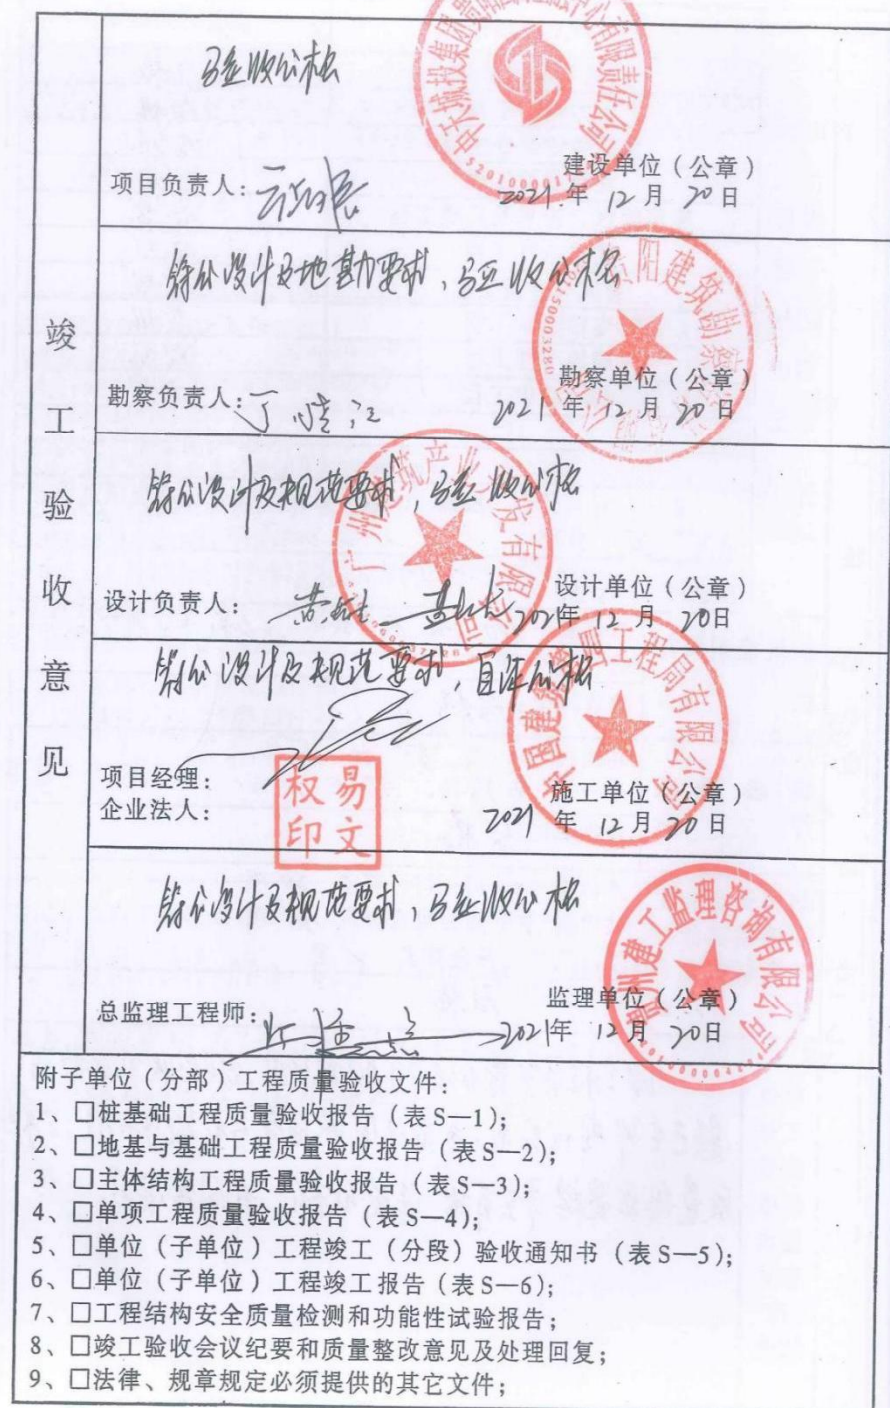 竣工验收意见
验收合格
项目负责人:
建设单位(公章)
2021年 12月 20日
符合设计及地勘要求,验收合格
勘察负责人:
勘察单位(公章)
2021年 12月 20日
符合设计及规范要求,验收合格
设计负责人:
设计单位(公章)
2021年 12月 20日
符合设计及规范要求,自评合格
项目经理:
企业法人:
易文权印
施工单位(公章)
2021年 12月 20日
符合设计及规范要求,验收合格
总监理工程师:
监理单位(公章)
2021年 12月 20日
附子单位(分部)工程质量验收文件:
1、□桩基础工程质量验收报告(表S—1);
2、□地基与基础工程质量验收报告(表S—2);
3、□主体结构工程质量验收报告(表S—3);
4、□单项工程质量验收报告(表S—4);
5、□单位(子单位)工程竣工(分段)验收通知书(表S—5);
6、□单位(子单位)工程竣工报告(表S—6);
7、□工程结构安全质量检测和功能性试验报告;
8、□竣工验收会议纪要和质量整改意见及处理回复;
9、□法律、规章规定必须提供的其它文件;